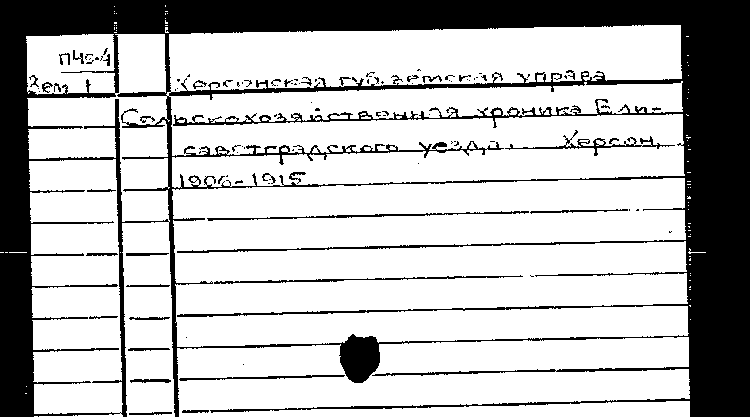 П46-4
Зем 1
Херсонская губ. земская управа
Сельскохозяйственная хроника Ели-
саветградского уезда. Херсон,
1906-1915